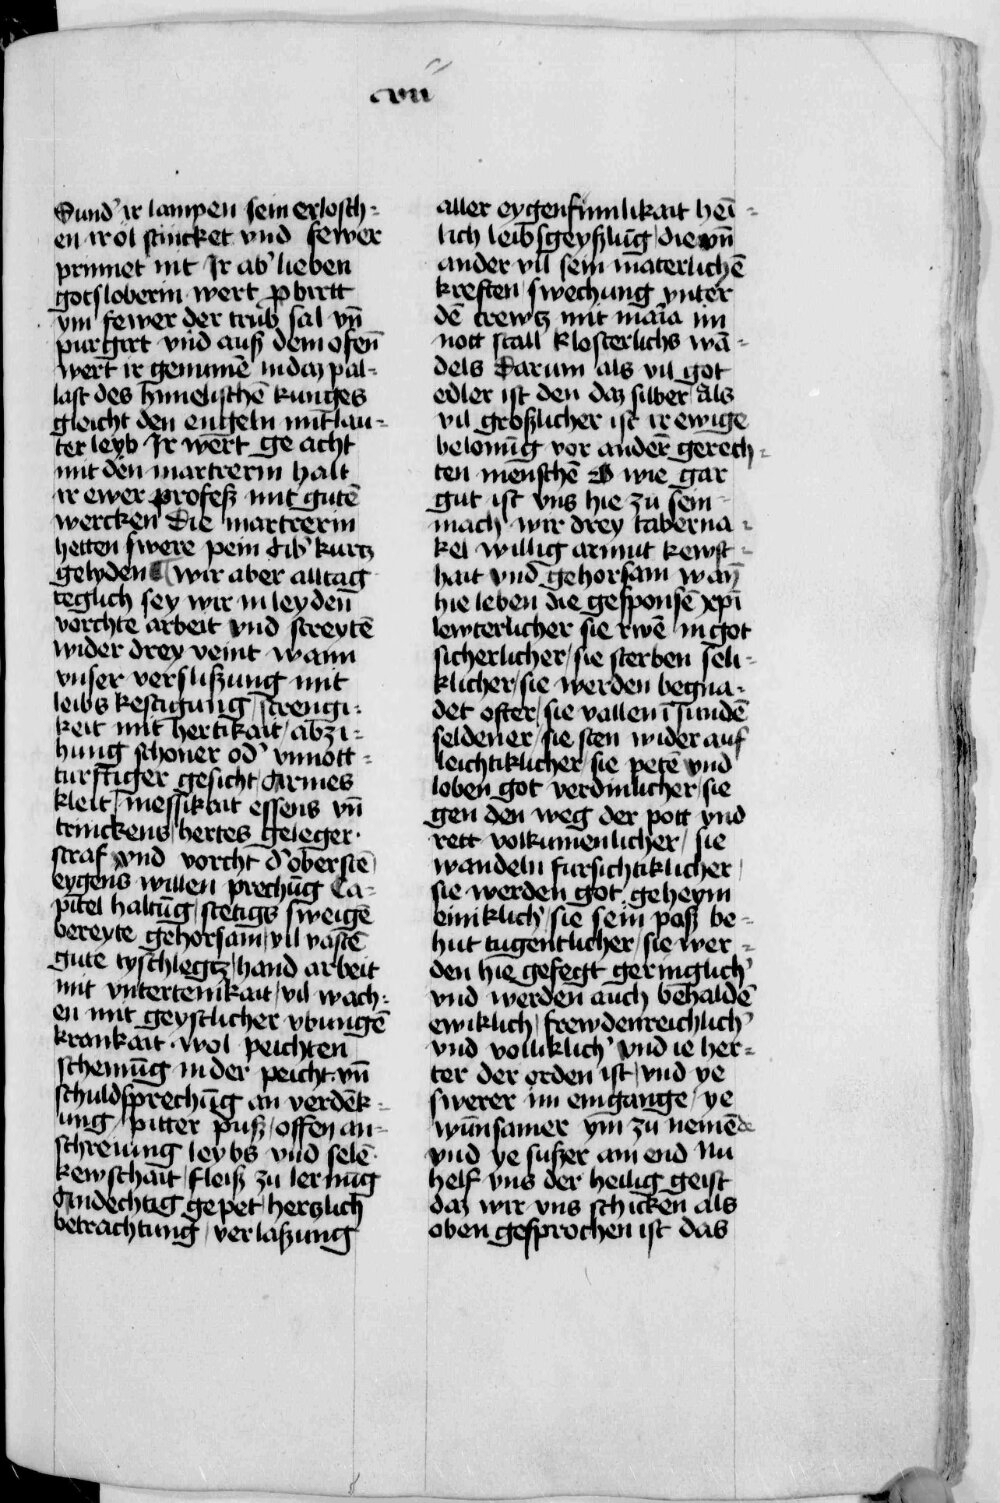 cvii
Sund' ir lampen sein erlosch-
en ir öl stincket vnd fewer
prinnet nit Ir ab' lieben
gotsloberin wert pbirtt
ym fewer der trub sal vn̄
purgirt vnd auß dem ofen̄
wert ir genumē in daz pal-
last des himelischē kunges
gleicht den engeln mit lau-
ter leyb Ir wert ge acht
mit den martrerin halt
ir ewer profeß mit gutē
wercken Die martrerin
hetten swere pein ab' kurtz
gelyden wir aber alltag
teglich sey wir in leyden
vorchte arbeit vnd streytē
wider drey veint wann
vnser verslißung mit
leibs kestigung / strengi-
keit mit hertikait / abzi-
hung schoner od' vnnott-
turftiger gesicht / Armes
kleit / messikait essens vn̄
trinckens / hertes geleger
straf vnd vorcht d' oberstē
eygens willen prechūg Ca-
pitel haltūg / stetigs sweigē
bereyte gehorsam / vil vastē
gute tyschlegtz / hand arbeit
mit vntertenikait / vil wach-
en mit geystlicher vbungē
krankait wol peichten
schemūg in der peicht vn̄
schuldsprechūg an verdēk-
ung / pitter puß / offen an-
schreiung leybs vnd selē
kewschait / fleiß zu lernūg
Andechtig gepet / hertzlich
betrachtung / verlaßung
aller eygensinnlikait hei-
lich leibsgeyßlūg / die vn̄
ander vil sein materlichē
kreften swechung vnter
dē crewtz mit maria im
nott stall klosterlichs wā-
dels Darum als vil got
edler ist den daz silber / Als
vil großlicher ist ir ewige
belonūg vor andern̄ gerech-
ten menschē O wie gar
gut ist vns hie zu sein
mach wir drey taberna-
kel willig armut kewst-
hait vnd gehorsam wan̄
hie leben die gesponsē xp̄i
lewterlicher sie rwē in got
sicherlicher / sie sterben seli-
klicher / sie werden begna-
det ofter / sie vallen ī sundē
seldener / sie sten wider auf
leichtiklicher / sie petē vnd
loben got verdinlicher / sie
gen den weg der pott vnd
rett volkumenlicher / sie
wandeln fursichtiklicher /
sie werden got geheym
einiklich' / sie sein paß be-
hut tugentlicher / sie wer-
den hie gefegt geringlich'
vnd werden auch behaldē
ewiklich / frewdenreichlich'
vnd volliklich' vnd ie her-
ter der orden ist / vnd ye
swerer im eingange / ye
wūnsamer ym zu nemēde
vnd ye sußer am end Nu
helf vns der heilig geist
daz wir vns schicken als
oben gesprochen ist das